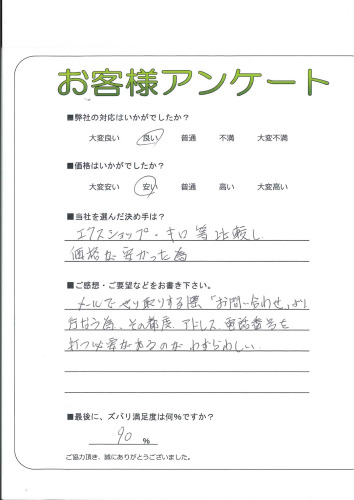 お客様アンケート
■弊社の対応はいかがでしたか？
大変良い 良い 普通 不満 大変不満
■価格はいかがでしたか？
大変安い 安い 普通 高い 大変高い
■当社を選んだ決め手は？
エクスショップ・キロ等比較し
価格が安かった為
■ご感想・ご要望などをお書き下さい。
メールでやり取りする際「お問い合わせ」より
行なう為、その都度、アドレス、電話番号を
打つ必要があるのがわずらわしい。
■最後に、ズバリ満足度は何％ですか？
90 %
ご協力頂き、誠にありがとうございました。